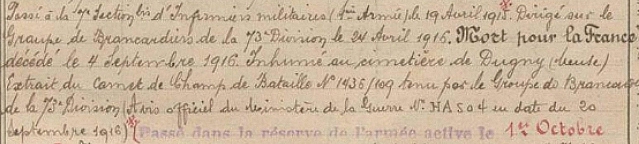 Passé à la 7e Section bis d'Infirmiers militaires ( Armée) le 19 Avril 1915. Dirigé sur le
Groupe de Brancardiers de la 73e Division le 24 Avril 1916. Mort pour la France
décédé le 4 Septembre 1916. Inhumé au cimetière de Dugny (Meuse)
Extrait du Carnet de Champ de Bataille N° 1436/109 tenu par le Groupe de Brancar
de la 73e Division (Avis officiel du Ministère de la Guerre N° HA 504 en date du 20
Septembre 1916) (Passé dans la réserve de l'armée active le 1er Octobre